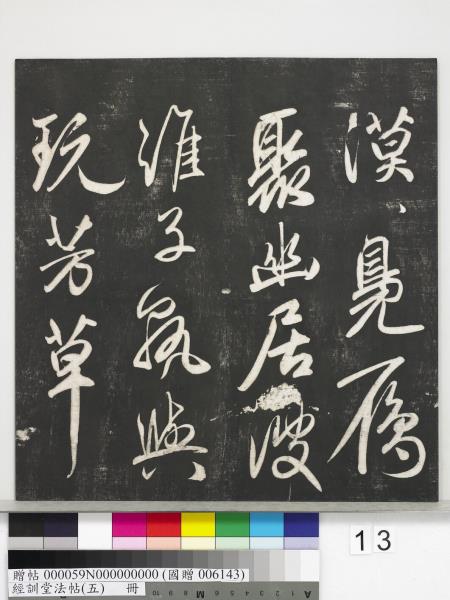 漠、鳧雁
聚幽居
淮子孰與
玩芳草
13
贈帖 000059N000000000 (國贈 006143)
經訓堂法帖(五) 冊